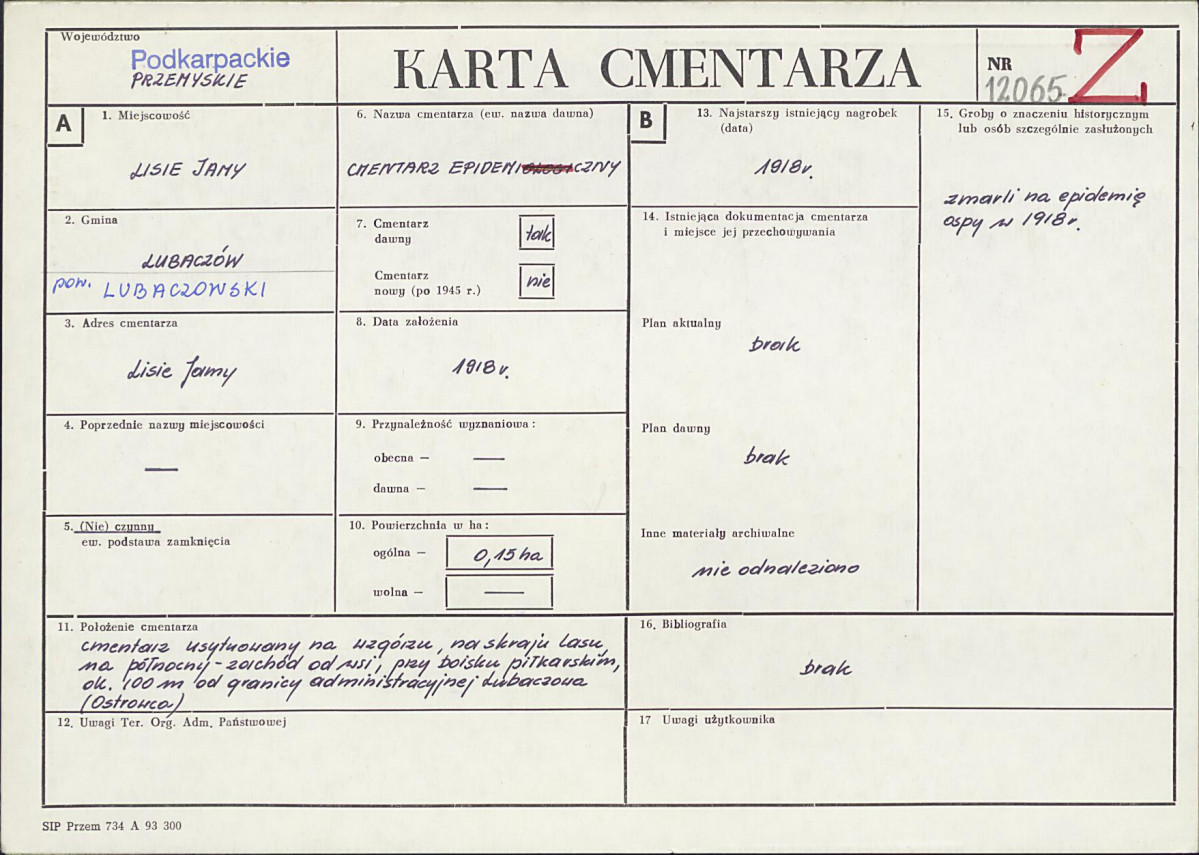 Województwo
Podkarpackie
PRZEMYSKIE
KARTA CMENTARZA
NR
12065
Z
A
1. Miejscowość
LISIE JAMY
2. Gmina
LUBACZÓW
pow. LUBACZOWSKI
3. Adres cmentarza
Lisie Jamy
4. Poprzednie nazwy miejscowości
—
5. (Nie) czynny
ew. podstawa zamknięcia
6. Nazwa cmentarza (ew. nazwa dawna)
CMENTARZ EPIDEMICZNY
7. Cmentarz
dawny
tak
Cmentarz
nowy (po 1945 r.)
nie
8. Data założenia
1918 r.
9. Przynależność wyznaniowa:
obecna — —
dawna — —
10. Powierzchnia w ha:
ogólna — 0,15 ha
wolna — —
B
13. Najstarszy istniejący nagrobek
(data)
1918 r.
14. Istniejąca dokumentacja cmentarza
i miejsce jej przechowywania
Plan aktualny
brak
Plan dawny
brak
Inne materiały archiwalne
nie odnaleziono
15. Groby o znaczeniu historycznym
lub osób szczególnie zasłużonych
zmarli na epidemię
ospy w 1918 r.
11. Położenie cmentarza
cmentarz usytuowany na wzgórzu, na skraju lasu,
na północny-zachód od wsi, przy boisku piłkarskim,
ok. 100 m od granicy administracyjnej Lubaczowa
(Ostrowca)
12. Uwagi Ter. Org. Adm. Państwowej
16. Bibliografia
brak
17 Uwagi użytkownika
SIP Przem 734 A 93 300